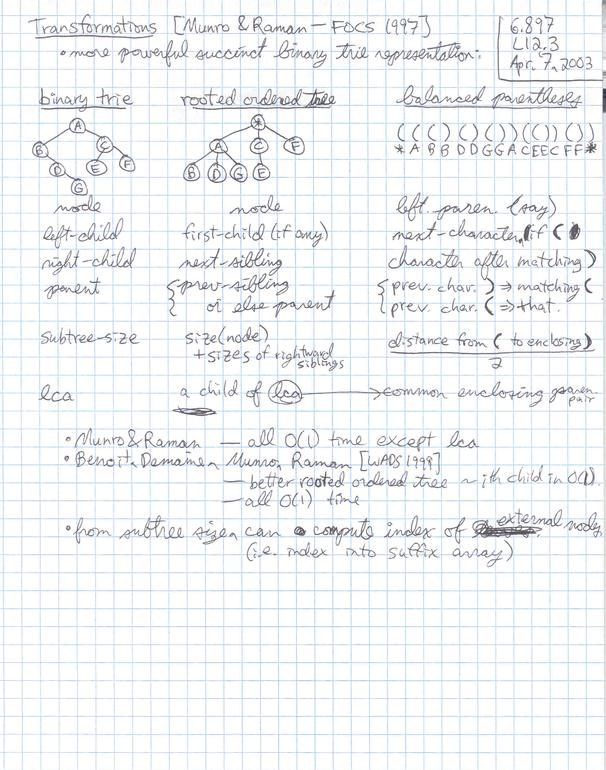 Transformations [Munro & Raman — FOCS 1997]
6.897
L12.3
Apr. 7, 2003
• more powerful succinct binary trie representation:
binary trie rooted ordered tree balanced parentheses
A
B C
D E F
G
*
A C F
B D G E
( ( ( ) ( ) ( ) ) ( ( ) ) ( ) )
* A B B D D G G A C E E C F F *
node node left paren. (say)
left-child first-child (if any) next-character, if (
right-child next-sibling character after matching )
parent { prev-sibling { prev. char. ) ⇒ matching (
or else parent prev. char. ( ⇒ that.
subtree-size size(node) distance from ( to enclosing )
+ sizes of rightward siblings 2
lca a child of lca → common enclosing paren. pair
• Munro & Raman — all O(1) time except lca
• Benoit, Demaine, Munro, Raman [WADS 1999]
— better rooted ordered tree ~ ith child in O(1)
— all O(1) time
• from subtree size, can compute index of external node,
(i.e. index into suffix array)